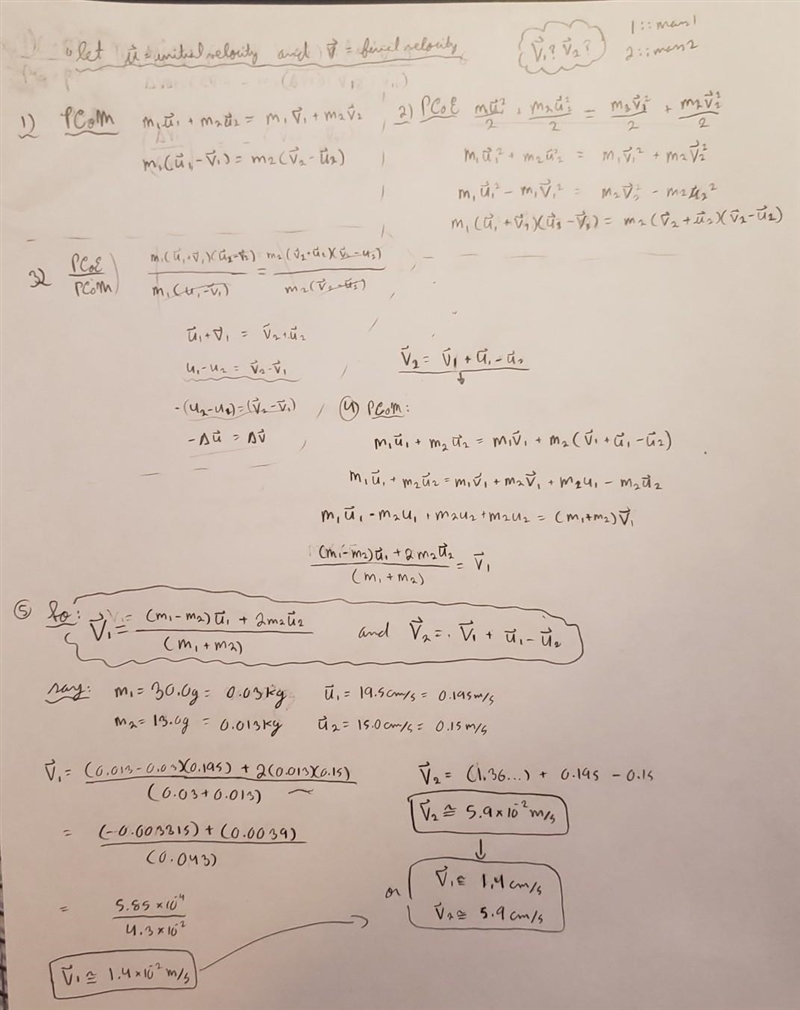 let u⃗ = initial velocity and v⃗ = final velocity
V⃗₁? V⃗₂?
1 :: mass1
2 :: mass2
1) PCoM m₁u⃗₁ + m₂u⃗₂ = m₁v⃗₁ + m₂v⃗₂
m₁(u⃗₁ - v⃗₁) = m₂(v⃗₂ - u⃗₂)
2) PCoE
m₁u⃗₁² + m₂u⃗₂² = m₁v⃗₁² + m₂v⃗₂²
m₁u⃗₁² - m₁v⃗₁² = m₂v⃗₂² - m₂u⃗₂²
= m₂(v⃗₂ + u⃗₂)(v⃗₂ - u⃗₂)
3) PCoE/PCoM
u⃗₁ + v⃗₁ = v⃗₂ + u⃗₂
u₁ - u₂ = v⃗₂ - v⃗₁
= (v⃗₂ - v⃗₁)
-Δu⃗ = Δv⃗
v⃗₂ = v⃗₁ + u⃗₁ - u⃗₂
↓
④ PCoM:
m₁u⃗₁ + m₂u⃗₂ = m₁v⃗₁ + m₂(v⃗₁ + u⃗₁ - u⃗₂)
m₁u⃗₁ + m₂u⃗₂ = m₁v⃗₁ + m₂v⃗₁ + m₂u₁ - m₂u⃗₂
m₁u⃗₁ - m₂u₁ + m₂u₂ + m₂u₂ = (m₁+m₂)v⃗₁
(m₁-m₂)u⃗₁ + 2m₂u⃗₂ / (m₁+m₂) = v⃗₁
⑤ So: V⃗₁ = (m₁-m₂)u⃗₁ + 2m₂u⃗₂ / (m₁+m₂) and V⃗₂ = V⃗₁ + u⃗₁ - u⃗₂
say: m₁ = 30.0g = 0.03kg u⃗₁ = 19.5cm/s = 0.195m/s
m₂ = 13.0g = 0.013kg u⃗₂ = 15.0cm/s = 0.15m/s
V⃗₁ = (0.013-0.03)(0.195) + 2(0.013)(0.15) / (0.03+0.013)
= (-0.003315) + (0.0039) / (0.043)
= 5.85×10⁻⁴ / 4.3×10⁻²
V⃗₁ ≅ 1.4×10⁻² m/s
V⃗₂ = (1.36...) + 0.195 - 0.15
V⃗₂ ≅ 5.9×10⁻² m/s
↓
or V⃗₁ ≅ 1.4 cm/s
V⃗₂ ≅ 5.9 cm/s